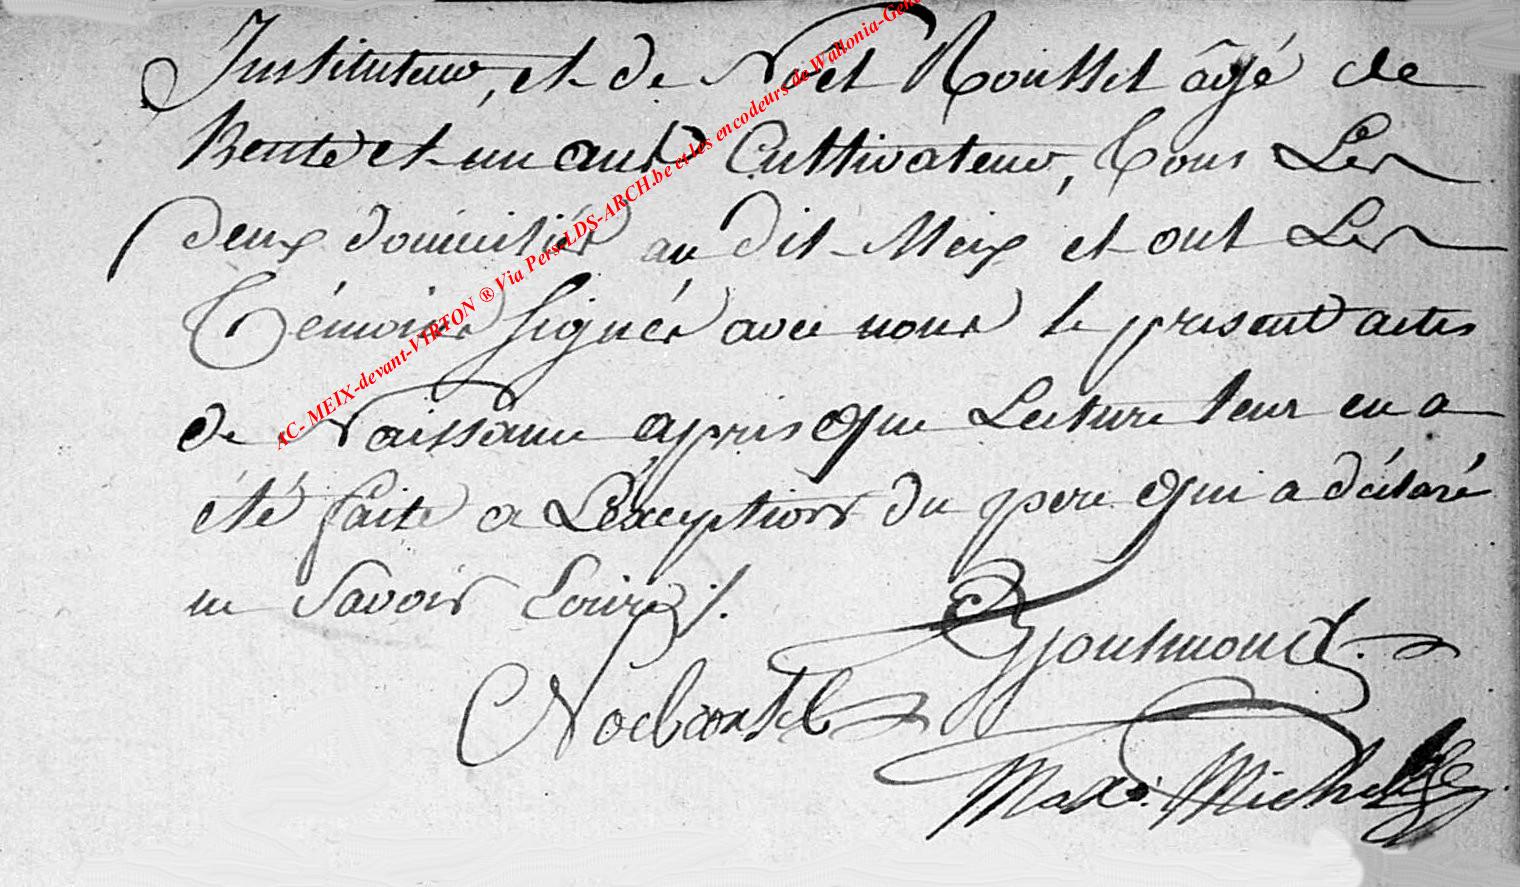 Instituteur, et de Noel Roussel âgé de
trente et un ans Cultivateur, tous Les
deux domiciliés au dit Meix et ont Les
Témoins signés avec nous le present actes
de Naissance après que Lecture leur en a
été faite a L'exception du pere qui a déclaré
ne savoir Ecrire ./.
Goulmond
Noel
Michel
AC- MEIX-devant-VIRTON ® Via Pers LDS-ARCH.be et les encodeurs de Wallonia-Gen